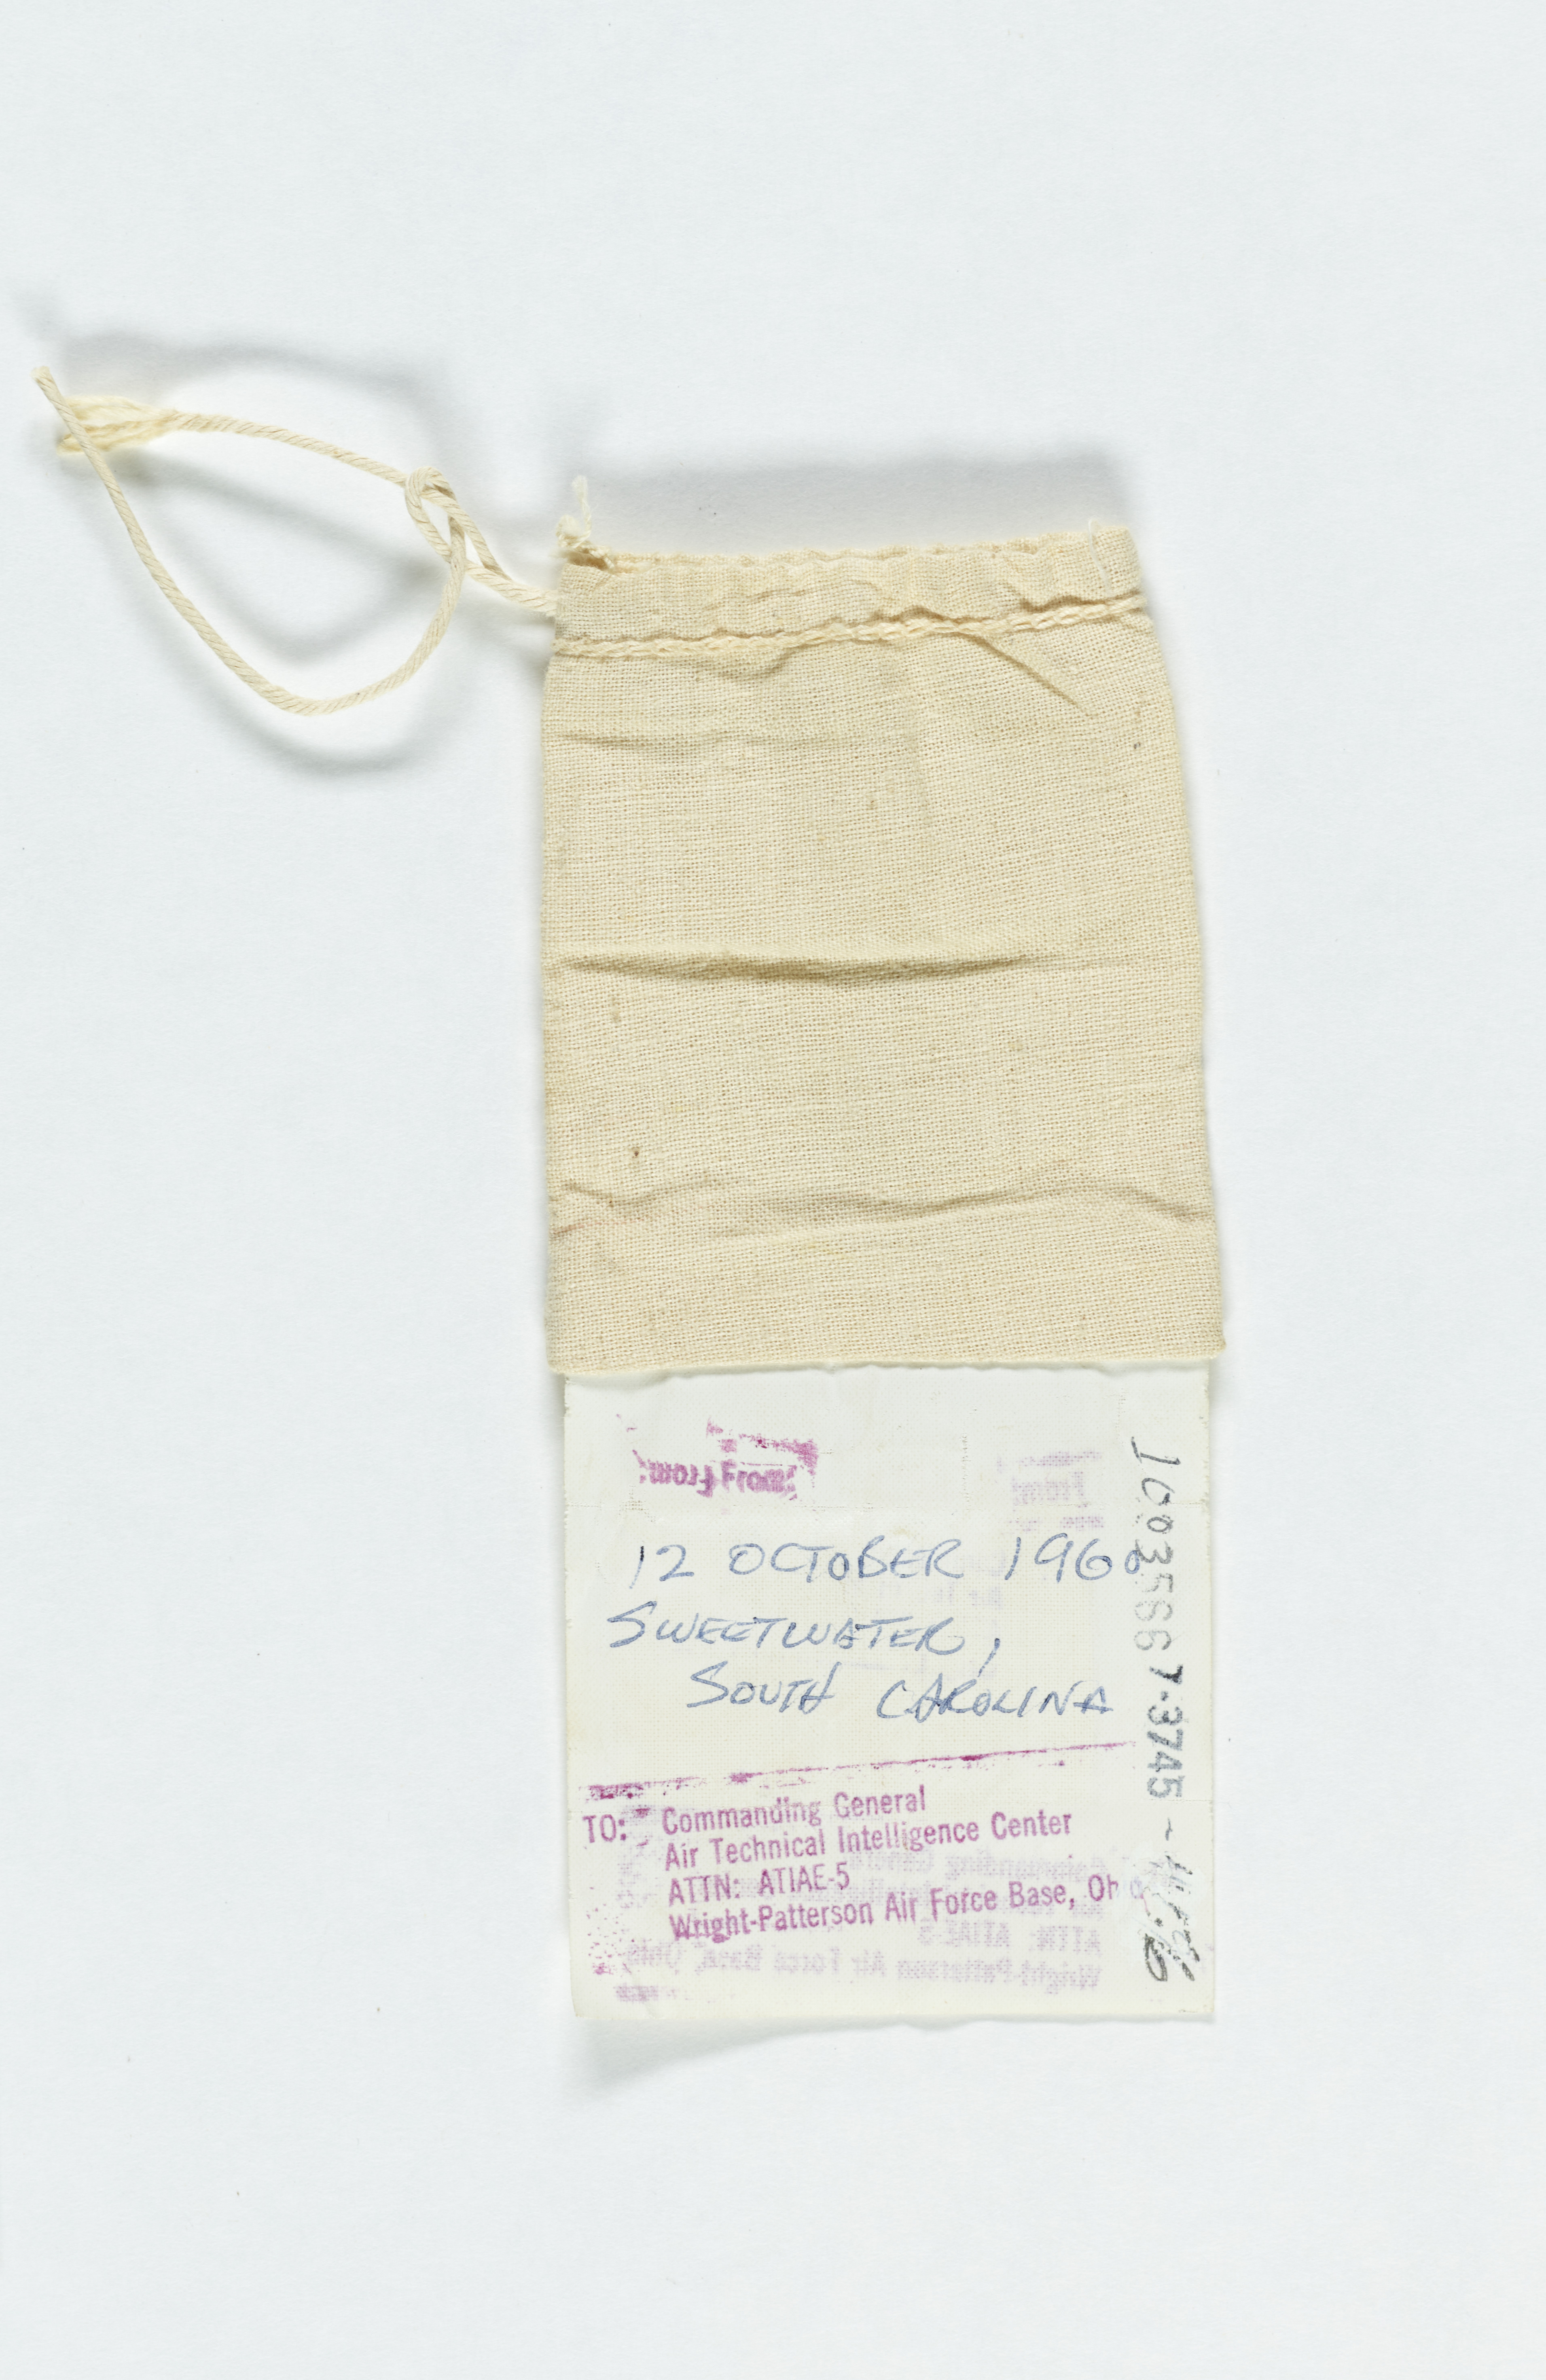 From:
12 OCTOBER 1960
SWEETWATER,
SOUTH CAROLINA
TO: Commanding General
Air Technical Intelligence Center
ATTN: ATIAE-5
Wright-Patterson Air Force Base, Ohio